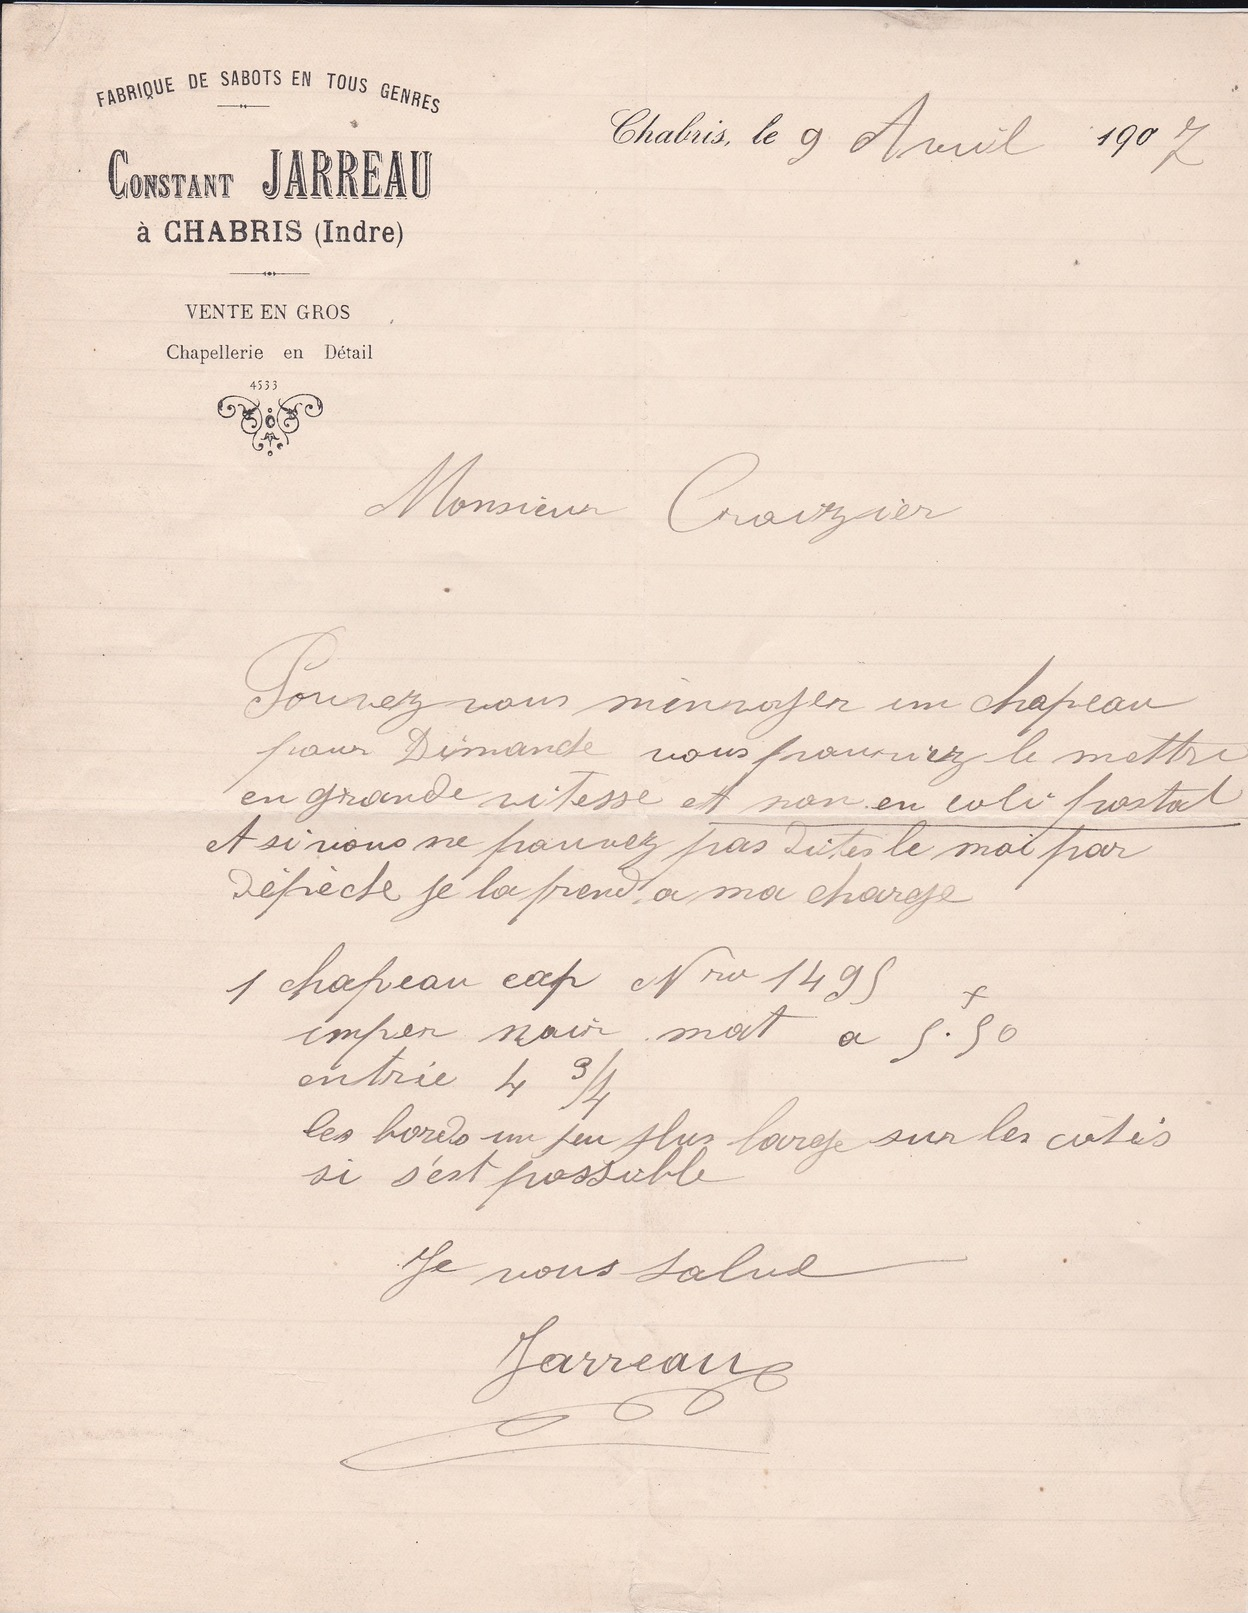 FABRIQUE DE SABOTS EN TOUS GENRES
CONSTANT JARREAU
à CHABRIS (Indre)
VENTE EN GROS
Chapellerie en Détail
4533
Chabris, le 9 Avril 1907
Monsieur Croizier
Pouvez vous m'envoyer un chapeau
pour Dimande vous pouvriez le mettre
en grande vitesse et non en coli postal
et si vous ne pouvez pas dites le moi par
dépèche je la prend a ma charge
1 chapeau cap Nro 1495
imper noir mat a 5.50
entrie 4 3/4
les bords un peu plus large sur les cotés
si s'est possible
Je vous salue
Jarreau